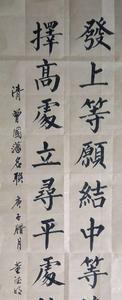 發上等願結中等
擇高處立尋平處
清曾國藩名聯庚子臘月